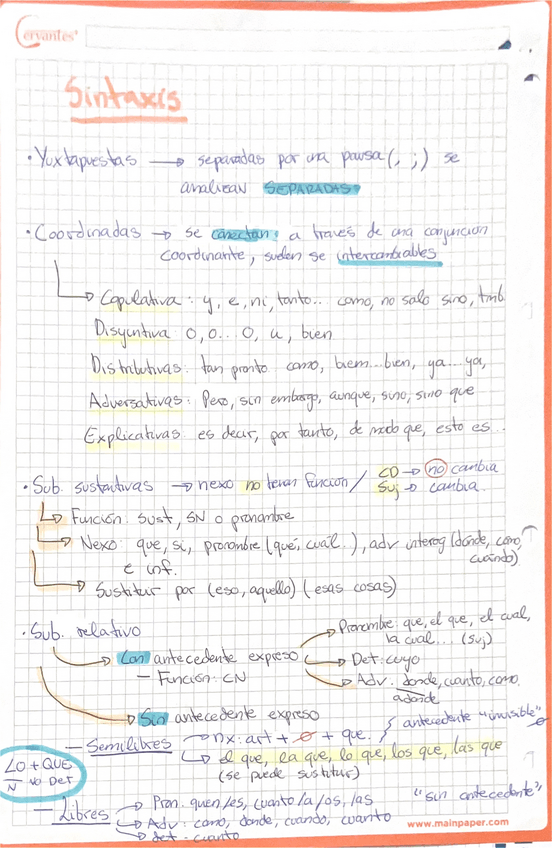 Cervantes
Sintaxis
· Yuxtapuestas → separadas por una pausa (, ;) se
analizan SEPARADAS
· Coordinadas → se conectan a través de una conjunción
coordinante, suelen se intercambiables
Copulativa: y, e, ni, tanto... como, no solo sino, tmb
Disyuntiva: o, o... o, u, bien
Distributivas: tan pronto como, biem...bien, ya...ya,
Adversativas: Pero, sin embargo, aunque, sino, sino que
Explicativas: es decir, por tanto, de modo que, esto es...
· Sub. sustantivas → nexo no tenan función / CD → no cambia
Suj → cambia.
Función: sust, SN o pronombre
Nexo: que, si, pronombre (qué, cuál..), adv interog (dónde, cómo,
cuándo)
e inf.
Sustituir por (eso, aquello) (esas cosas)
· Sub. relativo
Pronombre: que, el que, el cual,
la cual... (suj)
Con antecedente expreso → Det: cuyo
— Función: CN
Adv: donde, cuanto, como,
adonde
Sin antecedente expreso
— Semilibres → nx: art + ø + que. / antecedente "invisible" ø
el que, la que, lo que, los que, las que
(se puede sustituir)
LO + QUE
N no Det
— Libres → Pron: quien/es, cuanto/a/os, las "sin antecedente"
Adv: como, donde, cuando, cuanto
det: cuanto
www.mainpaper.com